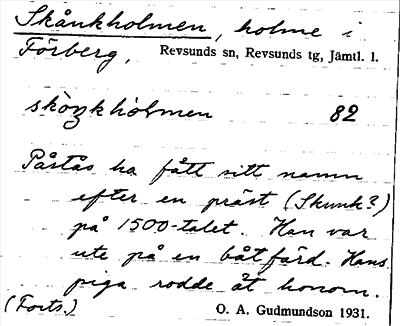 Skånkholmen, holme i
Förberg, Revsunds sn, Revsunds tg, Jämtl. l.
skòŋkhòlmen 82
Påstås ha fått sitt namn
efter en präst (Skunk?)
på 1500-talet. Han var
ute på en båtfärd. Hans
piga rodde åt honom.
(Forts.) O. A. Gudmundson 1931.